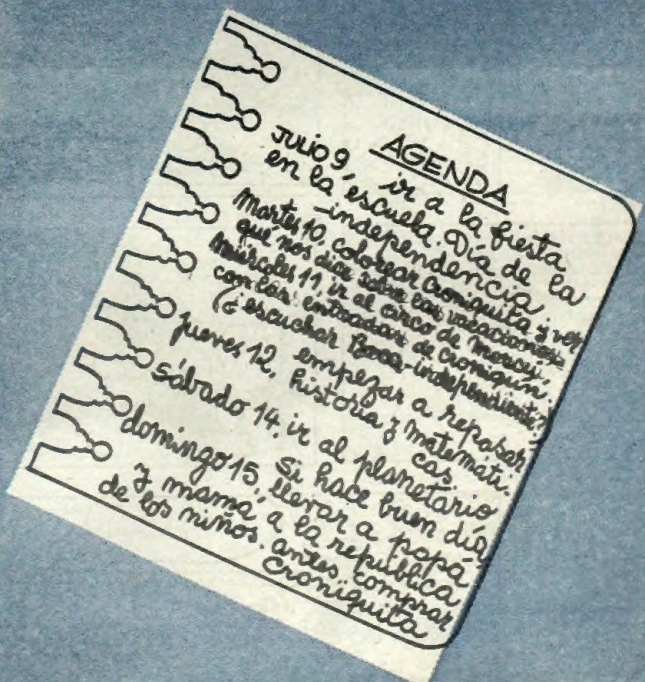 AGENDA
JULIO 9, ir a la fiesta
en la escuela. Día de la
-independencia
Martes 10, colorear Croniquita y ver
que nos dice sobre las vacaciones
Miércoles 11, ir al circo de
con las entradas de croniquín.
(¿escuchar Boca-independiente?
Jueves 12, empezar a repasar
historia y matemáti-
cas
sábado 14, ir al planetario
si hace buen día
domingo 15, llevar a papá
y mamá a la república
de los niños. antes comprar
croniquita